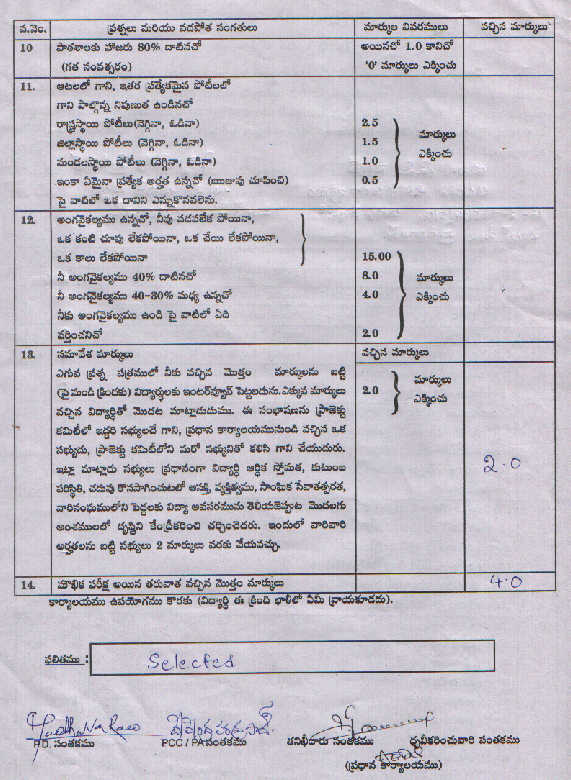 ప.నెం. ప్రశ్నలు మరియు నడపోత సంగతులు మార్కుల వివరములు వచ్చిన మార్కులు
10 పాఠశాలకు హాజరు 80% దాటినచో అయినచో 1.0 కానిచో
(గత సంవత్సరం) '0' మార్కులు ఎక్కించు
11. ఆటలలో గాని, ఇతర ప్రత్యేకమైన పోటీలలో
గాని పాల్గొన్న నిపుణత ఉండినచో
రాష్ట్రస్థాయి పోటీలు(నెగ్గినా, ఓడినా) 2.5 మార్కులు
జిల్లాస్థాయి పోటీలు (నెగ్గినా, ఓడినా) 1.5 ఎక్కించు
మండలస్థాయి పోటీలు (నెగ్గినా, ఓడినా) 1.0
ఇంకా ఏమైనా ప్రత్యేక అర్హత ఉన్నచో (ఋజువు చూపించి) 0.5
పై వాటిలో ఒక దానిని ఎన్నుకొనవలెను.
12. అంగవైకల్యము ఉన్నచో, నీవు నడవలేక పోయినా,
ఒక కంటి చూపు లేకపోయినా, ఒక చేయి లేకపోయినా,
ఒక కాలు లేకపోయినా 15.00
నీ అంగవైకల్యము 40% దాటినచో 8.0 మార్కులు
నీ అంగవైకల్యము 40-30% మధ్య ఉన్నచో 4.0 ఎక్కించు
నీకు అంగవైకల్యము ఉండి పై వాటిలో ఏది
వర్తించనిచో 2.0
13. సమావేశ మార్కులు వచ్చిన మార్కులు
ఎగువ ప్రశ్న పత్రములో నీకు వచ్చిన మొత్తం మార్కులను బట్టి మార్కులు
(పై నుండి క్రిందకు) విద్యార్థులకు ఇంటర్వ్యూర్ పెట్టబడును.ఎక్కువ మార్కులు 2.0 ఎక్కించు
వచ్చిన విద్యార్థితో మొదట మాట్లాడుదుము. ఈ సంభాషణను ప్రాజెక్టు
కమిటీలో ఇద్దరి సభ్యులచే గాని, ప్రధాన కార్యాలయమునుండి వచ్చిన ఒక
సభ్యుడు, ప్రాజెక్టు కమిటీలోని మరో సభ్యునితో కలిసి గాని చేయుదురు.
ఇట్లా మాట్లాడు సభ్యులు ప్రధానంగా విద్యార్థి ఆర్థిక స్తోమత, కుటుంబ 2.0
పరిస్థితి, చదువు కొనసాగించుటలో ఆసక్తి, వ్యక్తిత్వము, సాంఘిక సేవాతత్పరత,
వారిసంఘములోని పెద్దలకు విద్యా అవసరమును తెలియజెప్పుట మొదలగు
అంశములలో దృష్టిని కేంద్రీకరించి చర్చించెదరు. ఇందులో వారివారి
అర్హతలను బట్టి సభ్యులు 2 మార్కులు వరకు వేయవచ్చు.
14. మౌఖిక పరీక్ష అయిన తరువాత వచ్చిన మొత్తం మార్కులు 4.0
కార్యాలయము ఉపయోగము కొరకు (విద్యార్థి ఈ క్రింది ఖాళీలో ఏమీ వ్రాయకూడదు).
ఫలితము : Selected
P.D. సంతకము PCC / PA సంతకము తనిఖీదారు సంతకము ధృవీకరించువారి సంతకము
(ప్రధాన కార్యాలయము)